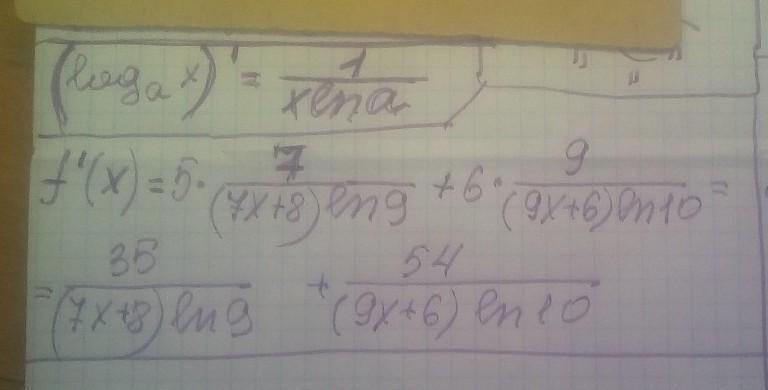 (logₐ x)' = 1/(x ln a)
f'(x) = 5 · 7/((7x+8) ln 9) + 6 · 9/((9x+6) ln 10) =
= 35/((7x+8) ln 9) + 54/((9x+6) ln 10)